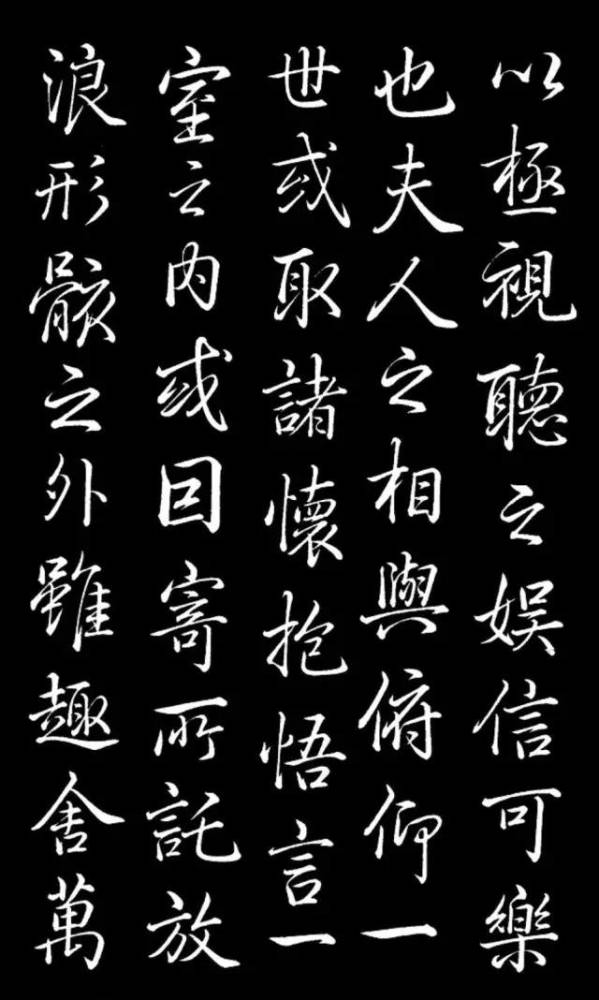 以極視聽之娱信可樂
也夫人之相與俯仰一
世或取諸懷抱悟言一
室之内或因寄所託放
浪形骸之外雖趣舍萬